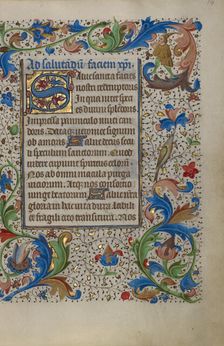 Ad salutandū faciem xp̄i
Salue sancta facies
nostri redemptoris
In qua nitet spe
cies diuini splēdoris
Impressa panniculo niuei can
doris Dataq; veronice signum
ob amoris Salue decus secu
li speculum sanctorum Quod
videre cupiunt spiritus celorū
Nos ab omni macula purga
viciorum Atq; nos consortio
iunge beatorum Salue nostra
gloria in hac vita dura labili
et fragili cito transitura Nos